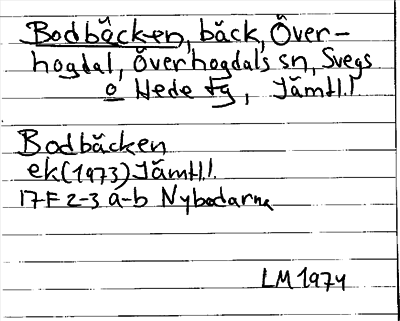 Bodbäcken, bäck, Över-
hogdal, Överhogdals sn, Svegs
o Hede tg, Jämtl.l
Bodbäcken
ek(1973)Jämtl.l.
17F 2-3 a-b Nybodarna
LM 1974